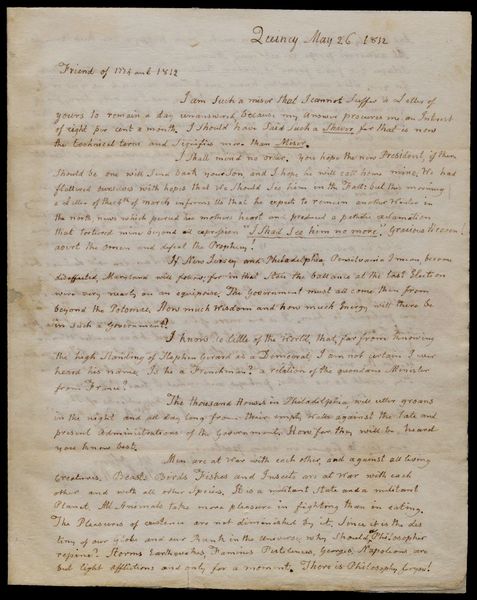 Quincy May 26 1812
Friend of 1774 and 1812
I am such a miser that I cannot suffer a Letter of
yours to remain a day unanswered, because my answer procures me an Interest
of eight per cent a month. I should have said such a Shaver for that is now
the technical term and signifies more than Miser.
I shall mind no order. You hope the new President, if there
should be one will send back your Son and I hope he will call home mine. We had
flattered ourselves with hopes that we should see him in the Fall: but this morning
a Letter of the of march informs us that he expects to remain another Winter in
the north, news which pierced his mothers heart and produced a pathetic exclamation
that tortured mine beyond all expression "I shall see him no more." Gracious Heaven!
avert the omen and defeat the Prophecy!
If New Jersey and Philadelphia, Pensilvania I mean become
disaffected, Maryland will follow, for in that State the ballance at the last Election
were very nearly on an equipoise. The Government must all come then from
beyond the Potomac. How much Wisdom and how much Energy will there be
in such a Government?
I know so little of the World, that, far from knowing
the high Standing of Stephen Gerard as a Democrat, I am not certain I ever
heard his name. Is he a Frenchman? a relation of the quondam Minister
from France?
The thousand Houses in Philadelphia will utter groans
in the night and all day long from their empty Walls against the late and
present Administrations of the Government. How far they will be heard
you know best.
Men are at War with each other, and against all living
Creatures. Beasts Birds Fishes and Insects are at War with each
other and with all other Species. It is a militant State and a militant
Planet. All Animals take more pleasure in fighting than in eating.
The Pleasures of existence are not diminished by it. Since it is the des
tiny of our Globe and our Rank in the Universe, why should a Philosopher
repine? Storms Earthquakes, Famines Pestilences, Georges, Napoleons, are
but light afflictions and only for a moment. There is Philosophy for you!